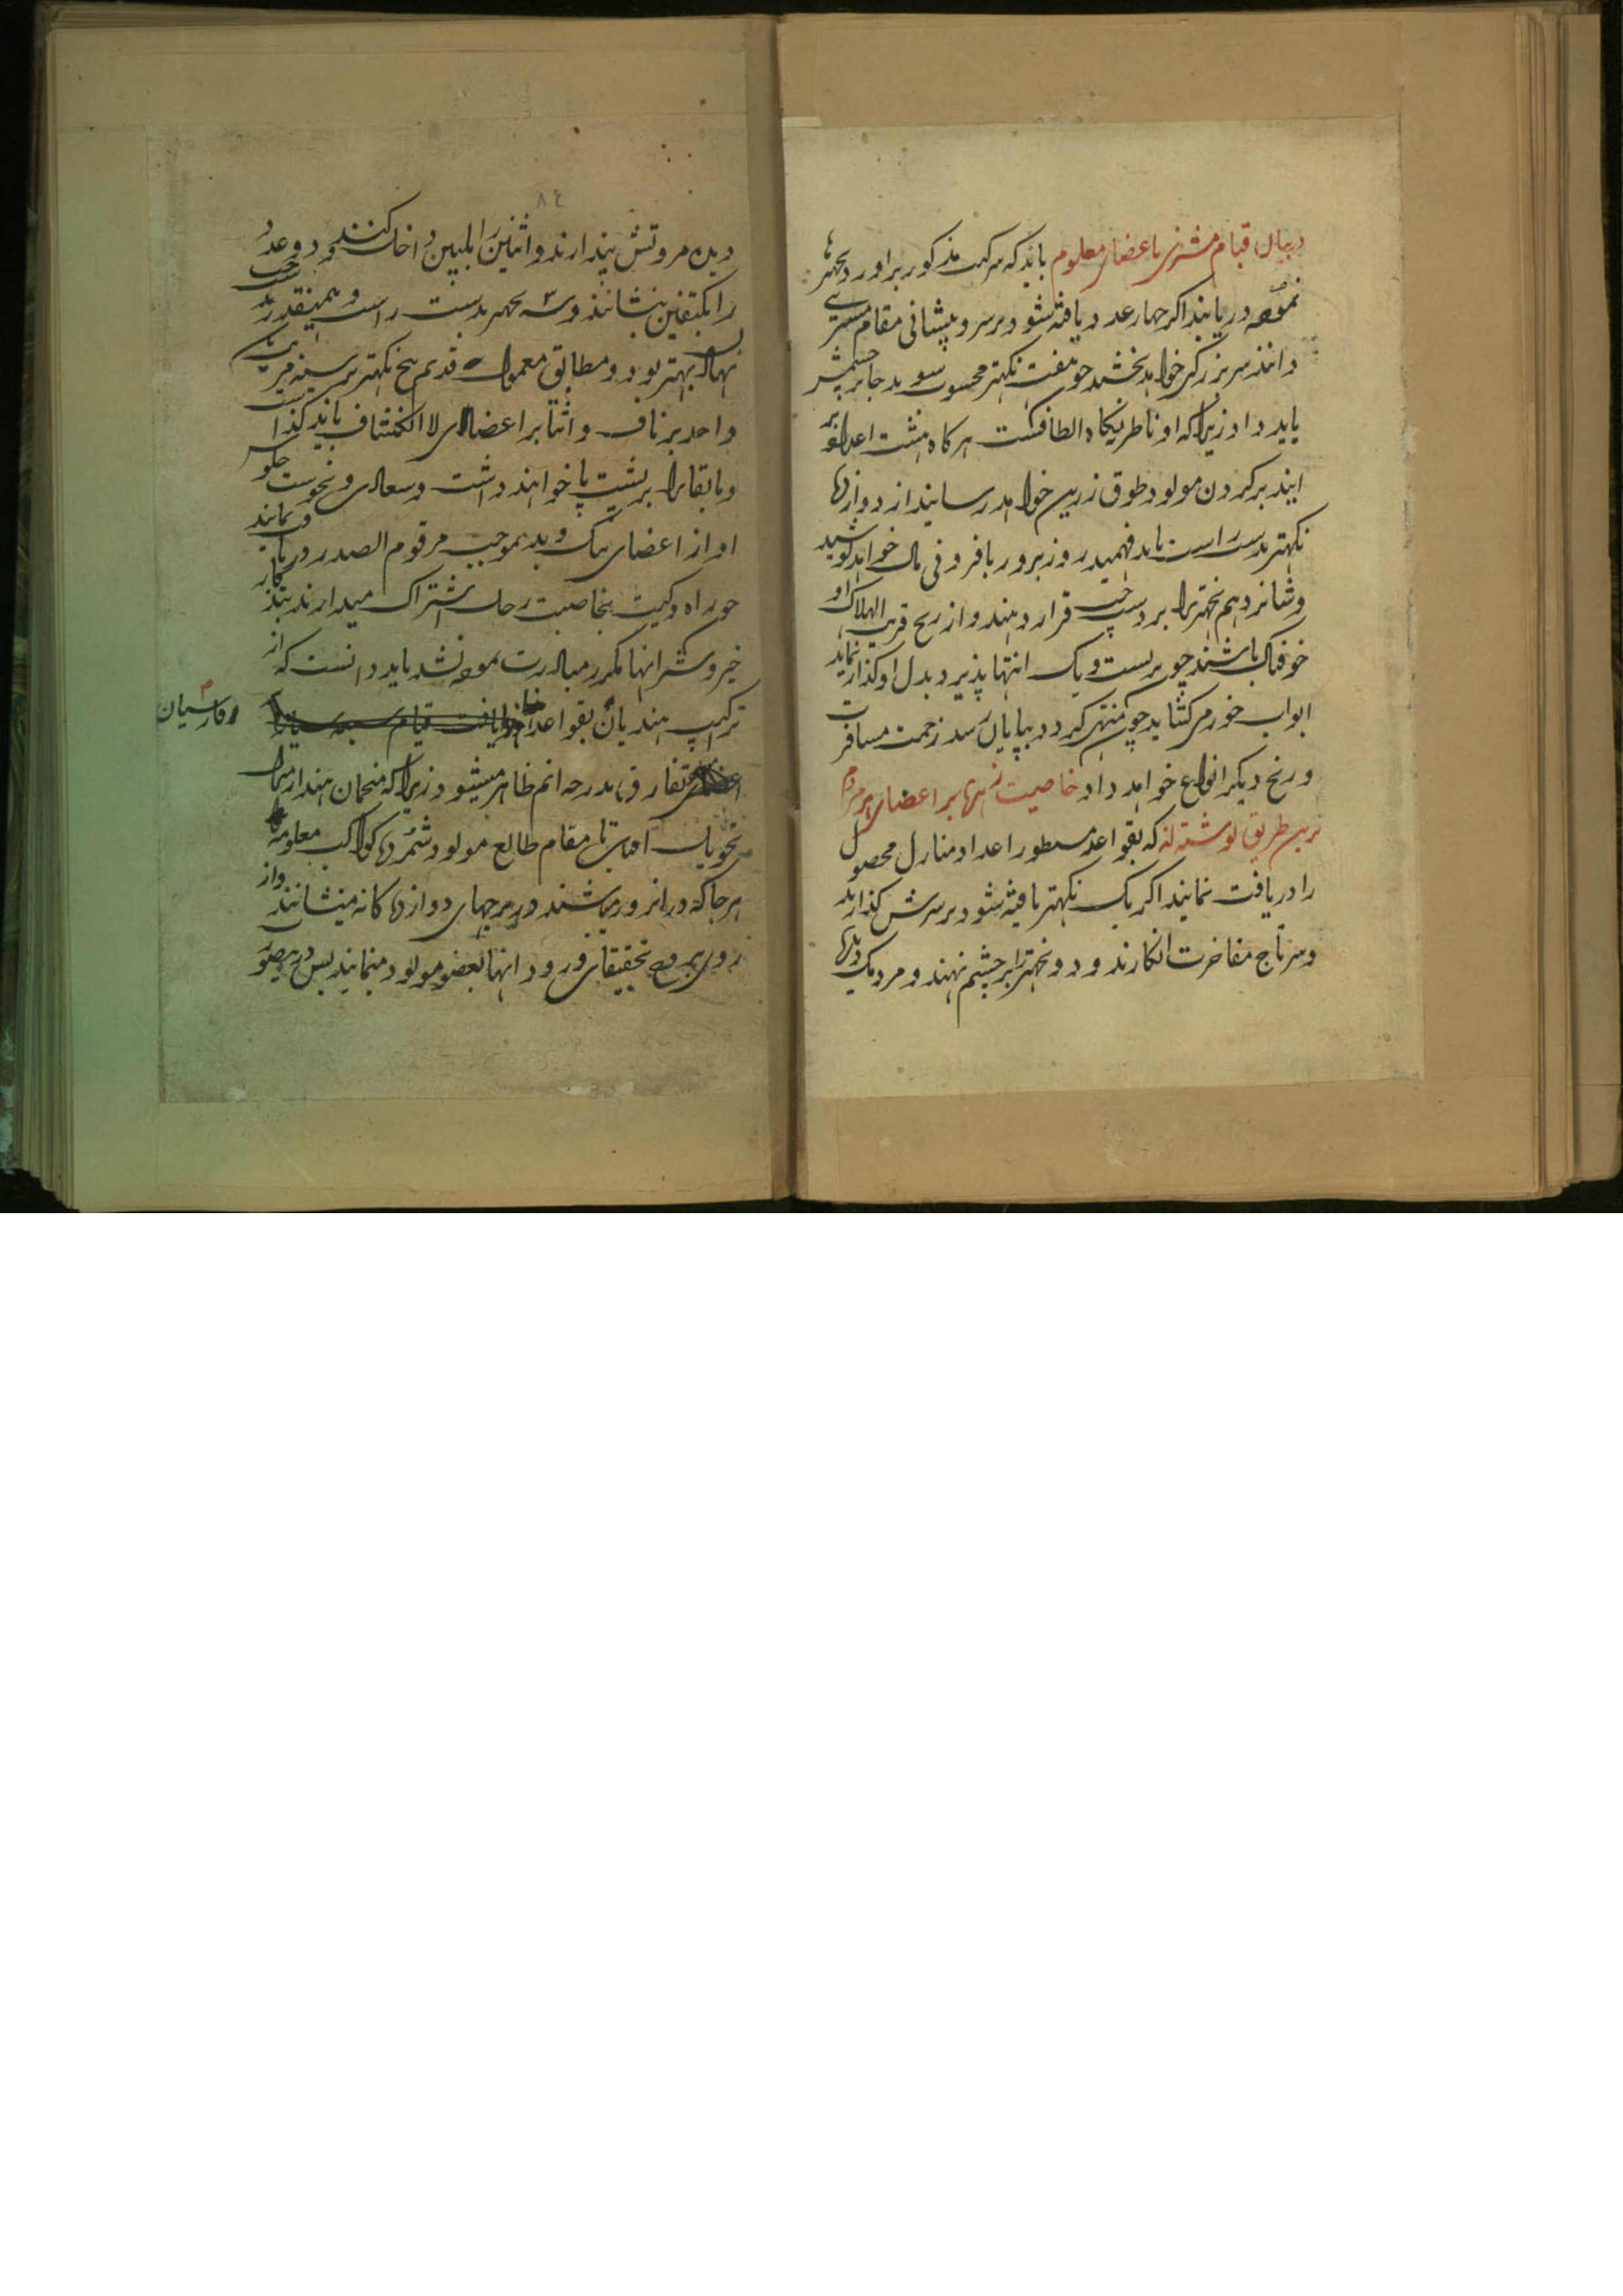 در بیان قیام مشتری باعضای معلوم باید که مرکب مذکور برآورد نجهترها
نموده دریابند اگر چهار عدد دریافته شود برسر و پیشانی مقام مشتری
دانند سر بزرگی خواهد بخشید چو هفت نکهتر محسوب شود بدجا بر چشمش
باید داد زیرا که او ناظر بنگاه الطافست هرگاه هشت اعداد بر
آیند بر گردن مولود طوق زرین خواهد رسانید از دوازدها
نکهتر بدست راست باید فهمید روز بروز بافر وفی مال خواهد کوشید
و شانزدهم نجهتر را بر دست چپ قرار دهند و از رنج قریب الهلاک او
خوفناک باشند چو بر بست و یک انتها پذیرد بدل او گذار نماید
ابواب خورمی گشاید چو منتهی گردد بپایان رسد زحمت مسافرت
و رنج دیگر انواع خواهد داد خاصیت زهره بر اعضای مردم
برین طریق نوشته اند که بقواعد مسطور اعداد منازل محصول
را دریافت نمایند اگر یک نکهتر یافته شود بر سرش گذارند
و سرتاج مفاخرت انگارند و دو نجهتر را بر چشم نهند و مردمک دیدها
دیده مروتش پندارند و اثنین را بلبین داخل کنند و دو عدد
را بکتفین بنشانند و سه نجهتر بدست راست و همینقدر بدست چپ
نهاد بهتر بود و مطابق معمول قدیم پنج نکهتر بر سینه
واحد بر ناف و اثنا بر اعضای لا انکشاف باید گذاشت
و مابقا را بر پشت پا خواهند داشت و سعادی و نحوست جلوس
او از اعضای نیک و بد بموجب مرقوم الصدر دریافت نمایند
چو راه و کیت بخاصیت زحل اشتراک میدارند بتذکار
خیر و شر آنها مکرر مبادرت نموده نشد باید دانست که از
ترکیب هندیان بقواعد
و فارسیان
تفارق بدرجه اتم ظاهر میشود زیرا که منجمان هند از مقام
تحویل آفتاب تا مقام طالع مولود شمرده کواکب معلومه
هرجا که در آنروز میباشند در برجهای دوازدهگانه مینشانند و از
روی بروج تحقیقات فرود آنها بعضو مولود مینمایند پس درینصورت